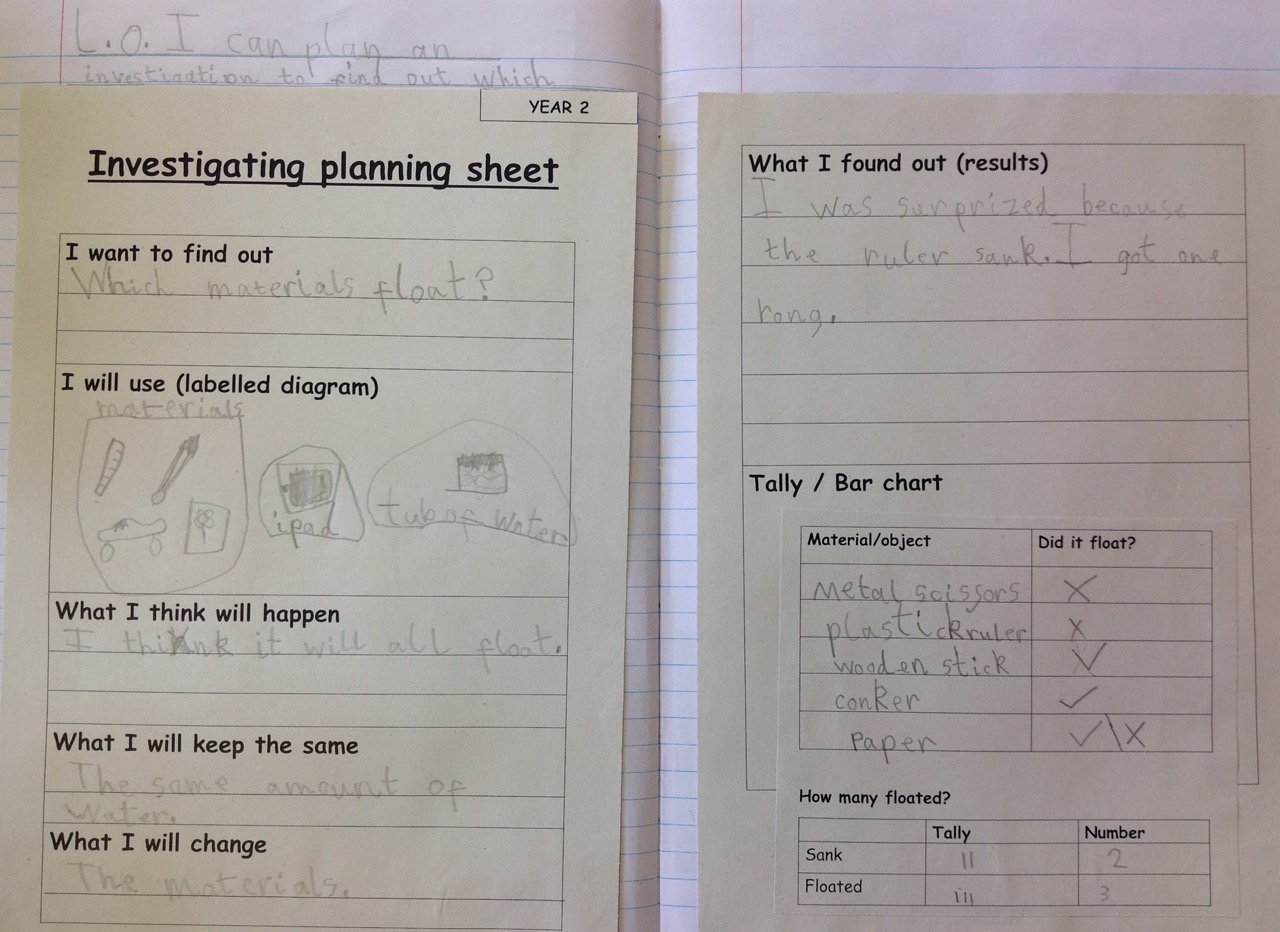 L.O. I can plan an
investigation to find out which
YEAR 2
Investigating planning sheet
I want to find out
Which materials float?
I will use (labelled diagram)
materials
ipad
tub of water
What I think will happen
I think it will all float.
What I will keep the same
The same amount of
water.
What I will change
The materials.
What I found out (results)
I was surprized because
the ruler sank. I got one
rong.
Tally / Bar chart
Material/object Did it float?
Metal scissors X
plastick ruler X
wooden stick ✓
conker ✓
Paper ✓\X
How many floated?
Tally Number
Sank II 2
Floated III 3